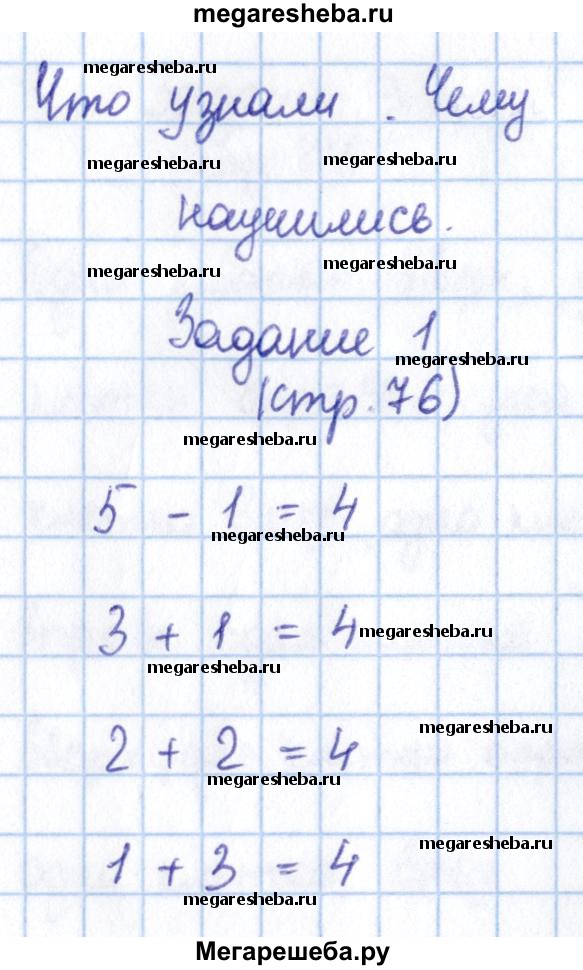 megaresheba.ru
megaresheba.ru
Что узнали. Чему
megaresheba.ru megaresheba.ru
научились.
megaresheba.ru megaresheba.ru
Задание 1
megaresheba.ru
(стр. 76)
megaresheba.ru
5 - 1 = 4
megaresheba.ru
3 + 1 = 4 megaresheba.ru
megaresheba.ru
megaresheba.ru
2 + 2 = 4
megaresheba.ru
megaresheba.ru
1 + 3 = 4
megaresheba.ru
Мегарешеба.ру